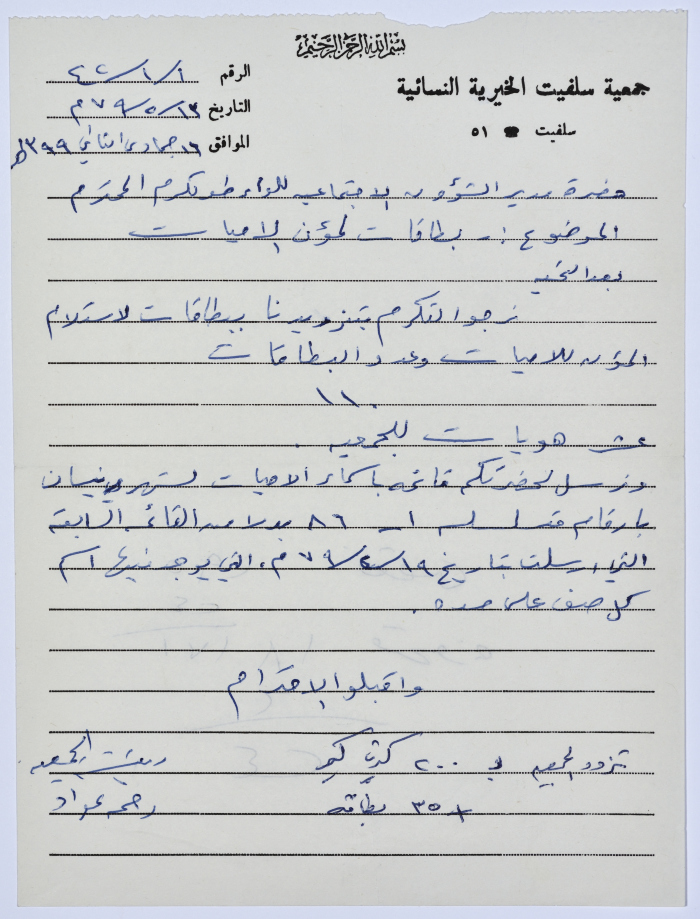 بسم الله الرحمن الرحيم
جمعية سلفيت الخيرية النسائية
سلفيت ☎ ٥١
الرقم ١/١/٤٢
التاريخ ١٣/٥/٧٩م
الموافق ١٦ جمادى الثاني ١٣٩٩هـ
حضرة مدير الشؤون الاجتماعيه للواء طولكرم المحترم
الموضوع :- بطاقات لمؤن الاميات
بعد التحيه
نرجو التكرم بتزويدنا ببطاقات لاستلام
المؤن للاميات وعدد البطاقات
١١٠
هويات للجمعيه .
ونرسل لحضرتكم قائمه باسماء الاميات لشهر نيسان
بارقام متسلسله ١-٨٦ بدلا من القائمه السابقة
التي ارسلت بتاريخ ١٩/٤/٧٩م، التي يوجد فيها اسم
كل صنف على حده .
واقبلوا الاحترام
تزود الجمعيه ب ٢٠٠ كرت كبير
+ ٣٥ بطاقه
رئيسة الجمعيه
رحمه عواد